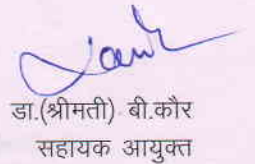 डा.(श्रीमती) बी.कौर
सहायक आयुक्त